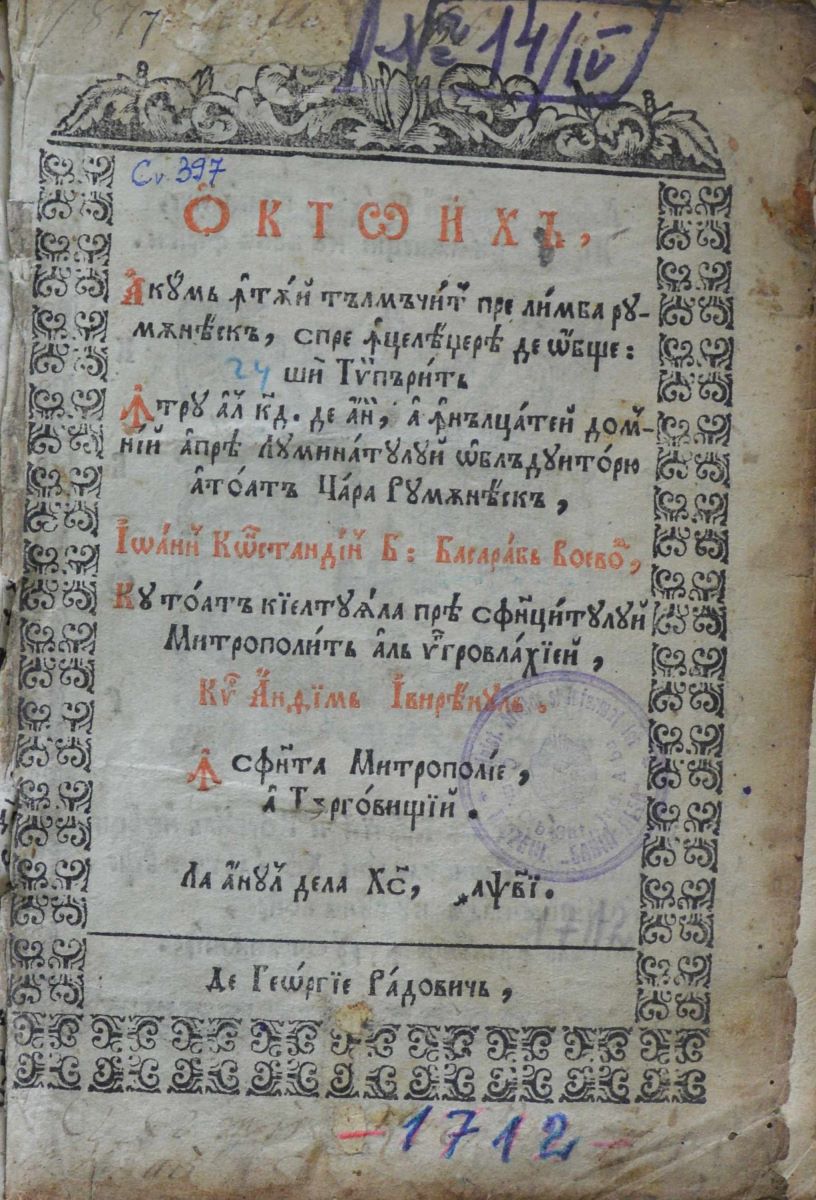 1877
№ 14/IV
Cv 397
Ѻ҆КТѠИХЪ,
А҆кꙋ́мь ꙟ҆тѫ́й тълмъчи́т пре ли́мба рꙋ-
мѫнѣ́скъ, спре ꙟ҆целѣ́ѱерѣ де ѡ҆́бще:
24 шѝ Тѷпъри́ть
Ꙟ҆трꙋ а҆л к҃д. де а҆́нй, а҆ ꙟ҆нълца́тей дом-
ні́й а҆прѣ Лꙋмина́тꙋлꙋй ѡ҆блъдꙋито́рю
а҆то́атъ Ца́ра Рꙋмѫнѣ́скъ,
І҆ѡа́нй Кѡстанді́й Б: Басара́бь Воевод,
Кꙋ то́атъ кїелтꙋѧ́ла прѣ сфинци́тꙋлꙋй
Митрополи́ть а҆ль ѹ҆гровла́хїей,
Кѷр А҆́нѳїмь І҆вирѣ́нꙋль.
Ꙟ҆ сфи́нта Митропо́лїе,
а҆ Тѫрго́вищїй.
Ла а҆́нꙋл дела Хс҃, ҂аѱ҃ві.
1712
Де Гео́ргїе Ра́довичь,
-1712-